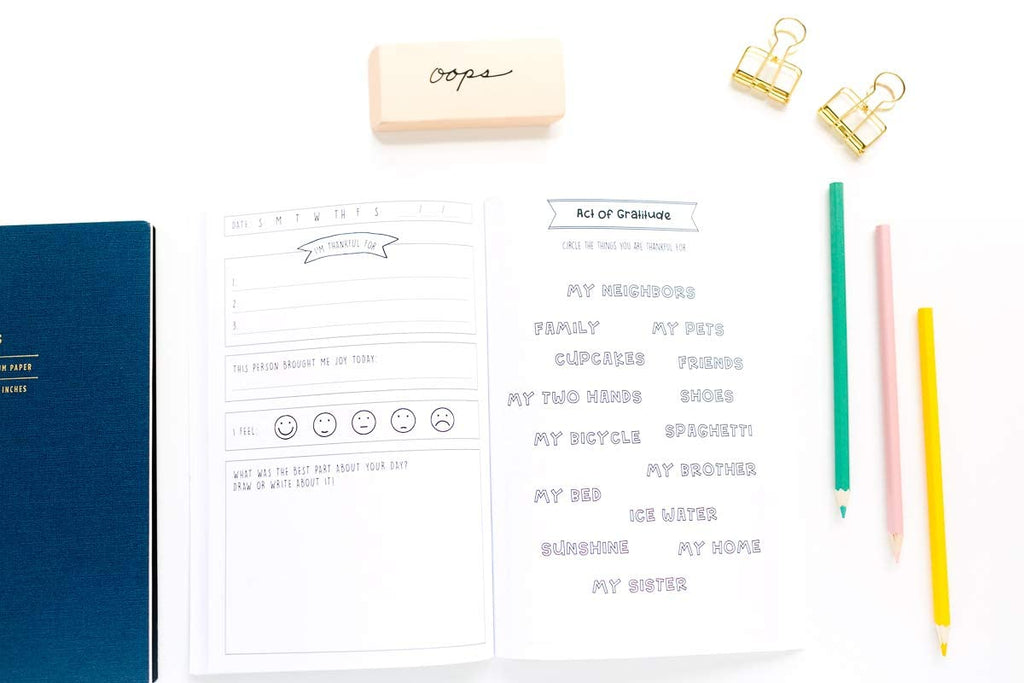 oops
S
M PAPER
INCHES
DATE: S M T W TH F S / /
I'M THANKFUL FOR
1.
2.
3.
THIS PERSON BROUGHT ME JOY TODAY:
I FEEL:
WHAT WAS THE BEST PART ABOUT YOUR DAY?
DRAW OR WRITE ABOUT IT!
Act Of Gratitude
CIRCLE THE THINGS YOU ARE THANKFUL FOR
MY NEIGHBORS
FAMILY MY PETS
CUPCAKES FRIENDS
MY TWO HANDS SHOES
MY BICYCLE SPAGHETTI
MY BROTHER
MY BED
ICE WATER
SUNSHINE MY HOME
MY SISTER